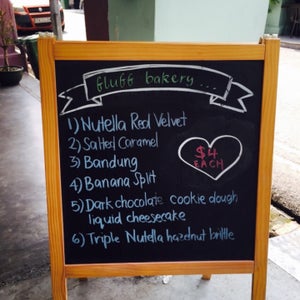 fluff bakery...
1) Nutella Red Velvet
2) Salted Caramel
3) Bandung
4) Banana Split
5) Dark chocolate cookie dough
liquid cheesecake
6) Triple Nutella hazelnut brittle
$4
EACH